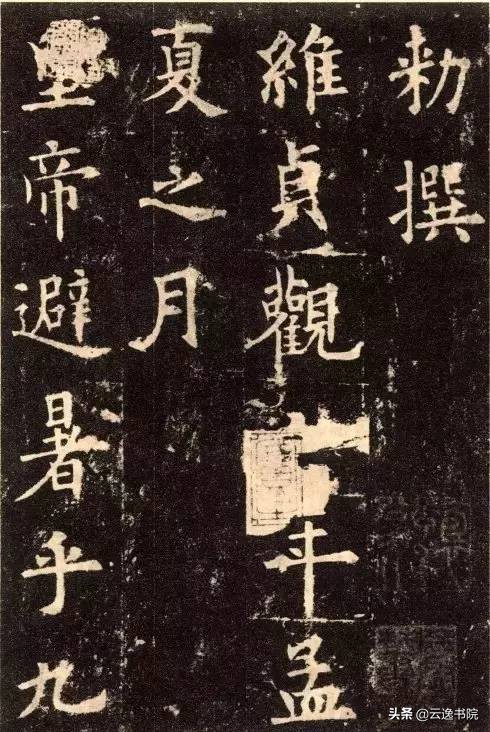 勑撰
維貞觀年孟
夏之月
皇帝避暑乎九
头条@云逸书院